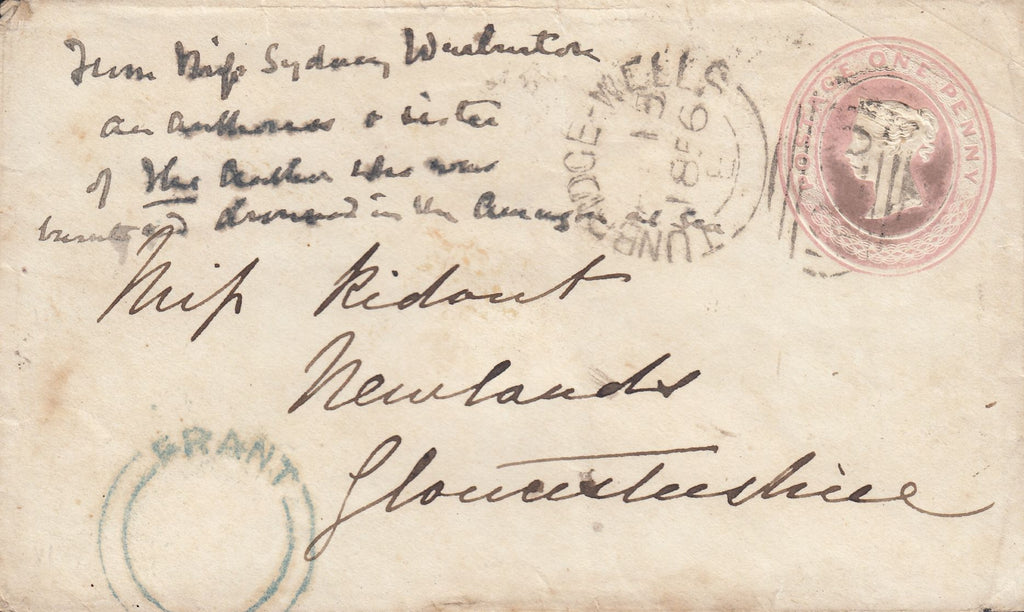 From Miss Sydney Warburton
an authoress & sister
of the Author who was
burnt or drowned in the Amazon at Sea
TUNBRIDGE-WELLS
15
1856
E
POSTAGE ONE PENNY
Miss Ridout
Newlands
Gloucestershire
FRANT